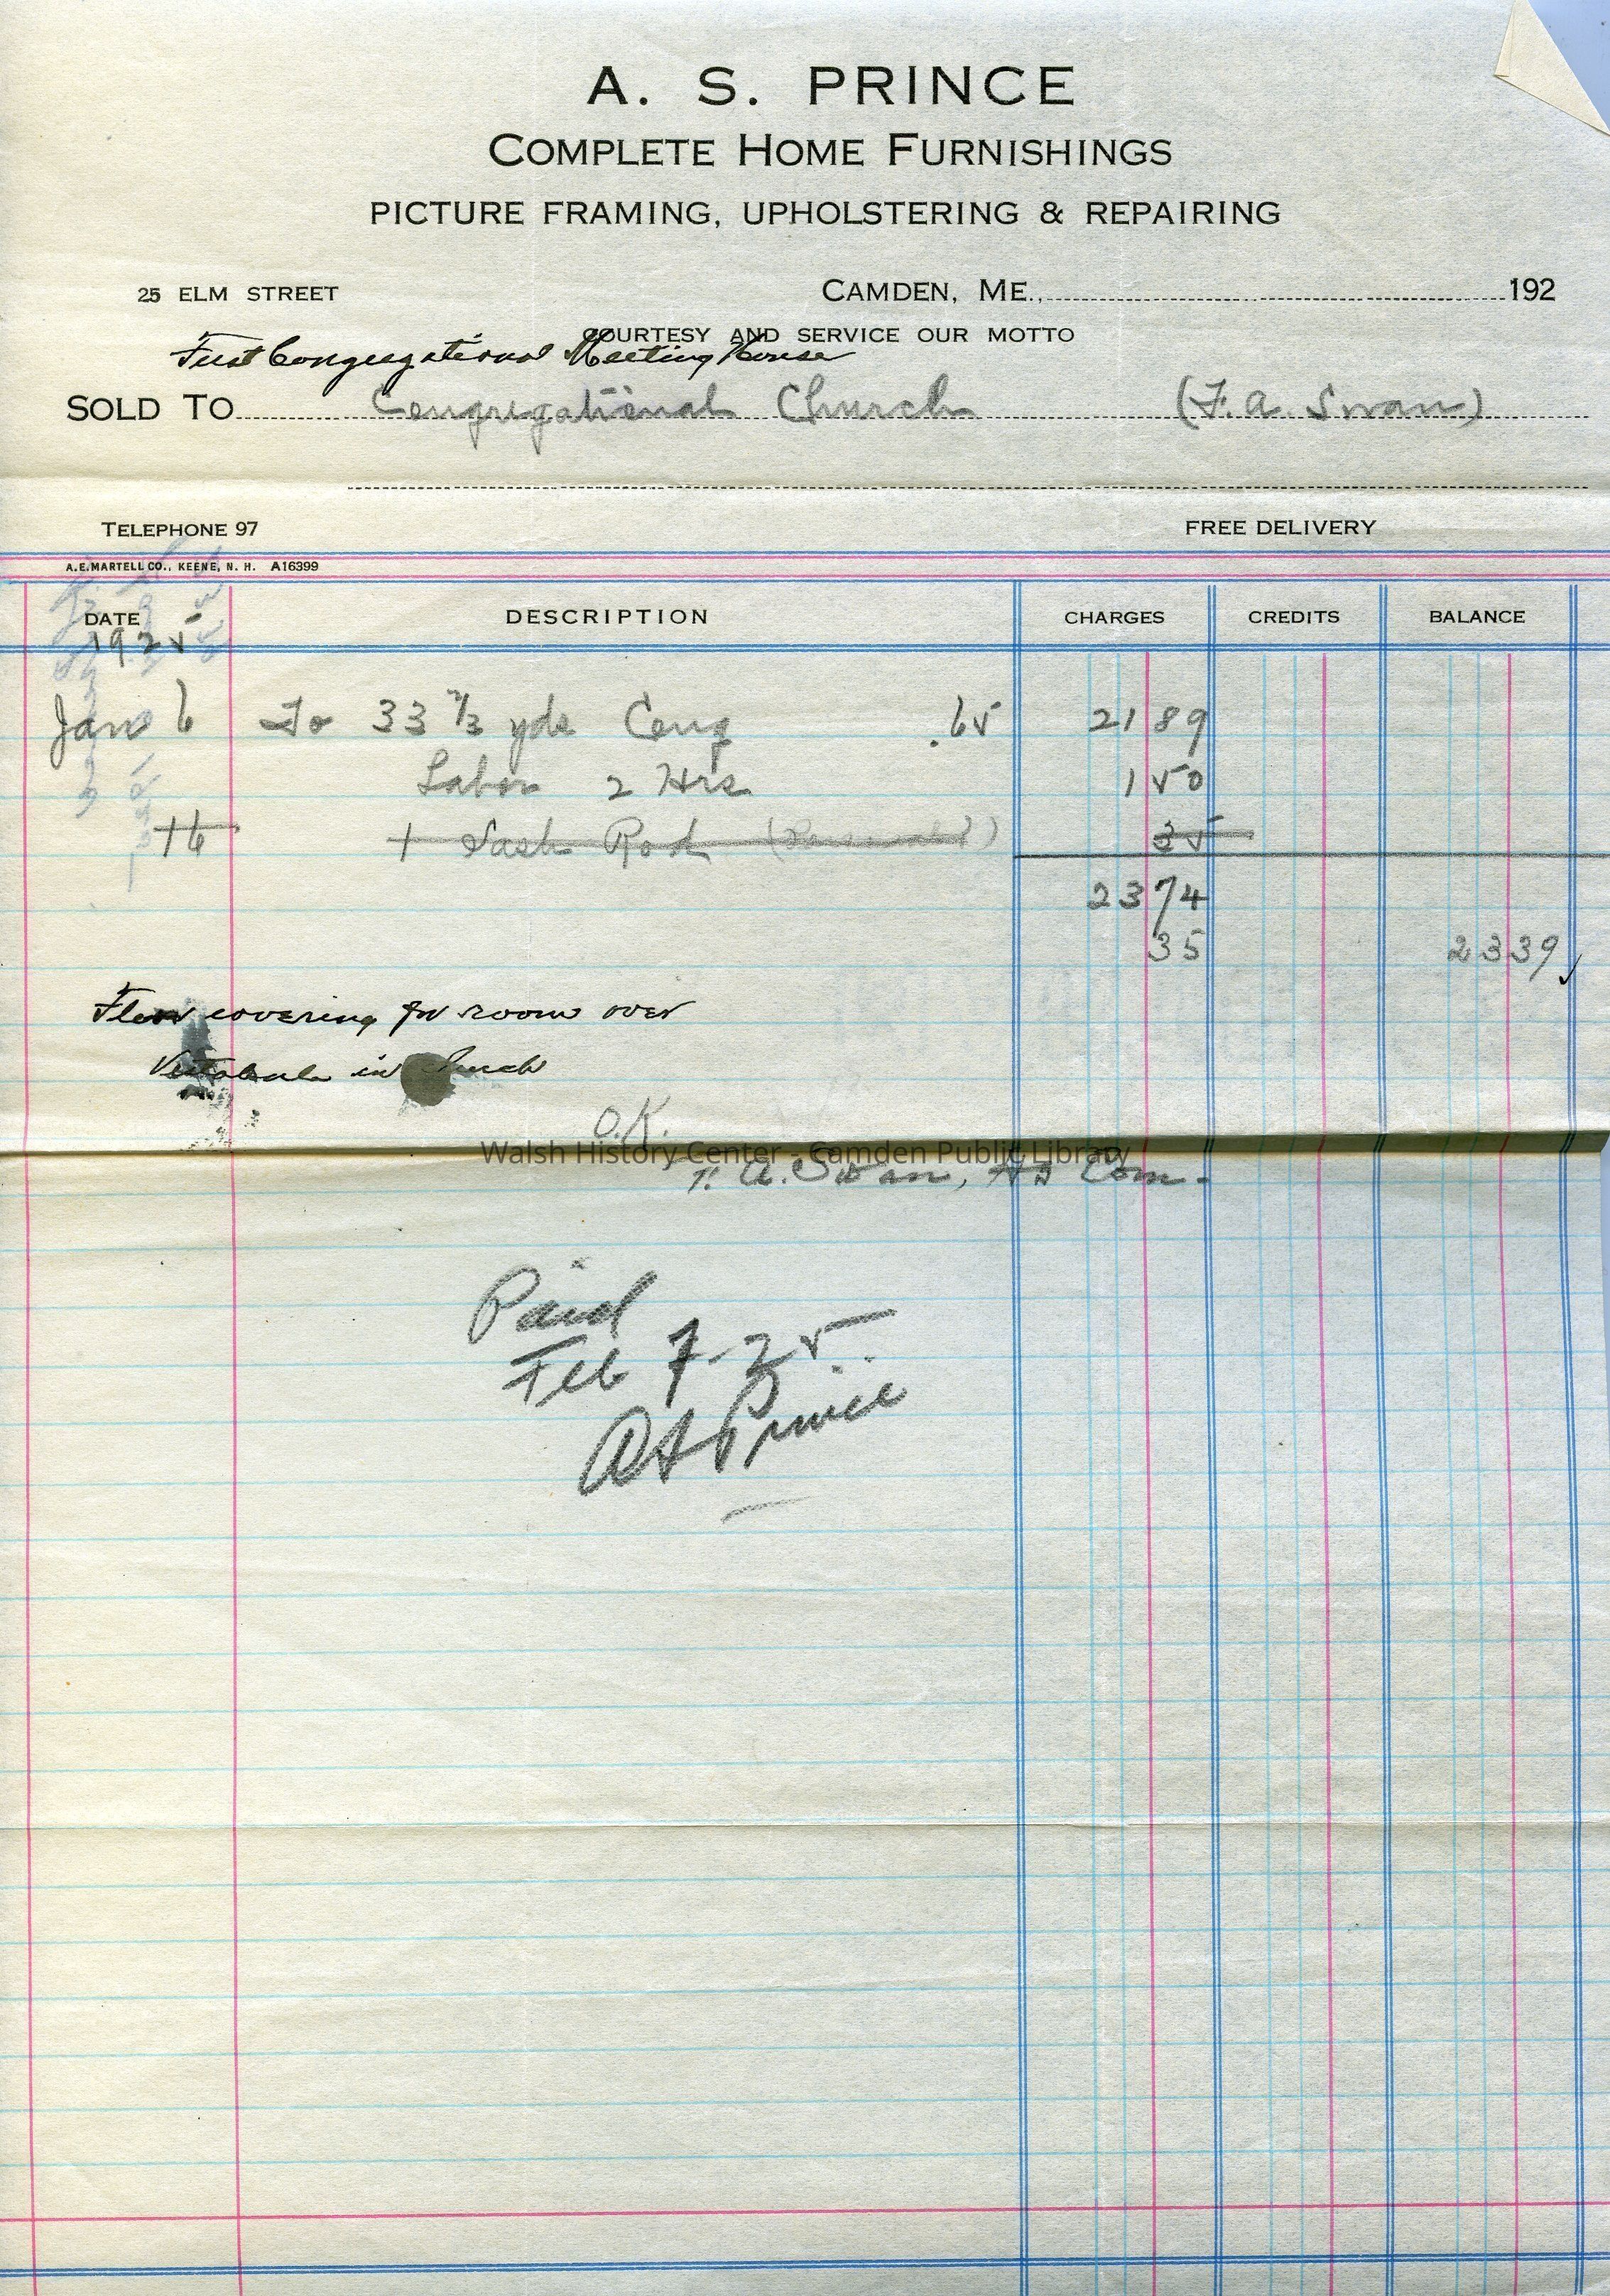 A. S. PRINCE
COMPLETE HOME FURNISHINGS
PICTURE FRAMING, UPHOLSTERING & REPAIRING
25 ELM STREET CAMDEN, ME., 192
COURTESY AND SERVICE OUR MOTTO
First Congregational Meeting House
SOLD TO Congregational Church (F. A. Swan)
TELEPHONE 97 FREE DELIVERY
A.E. MARTELL CO., KEENE, N. H. A16399
DATE DESCRIPTION CHARGES CREDITS BALANCE
1925
Jan 6 To 33 2/3 yds Cong .65 21 89
Labor 2 Hrs 1 50
16 1 Sash Rod 35
23 74
35 23 39
Floor covering for room over
Vestabule in Church
O.K.
Walsh History Center - Camden Public Library
F. A. Swan, Com.
Paid
Feb 7-25
A S Prince